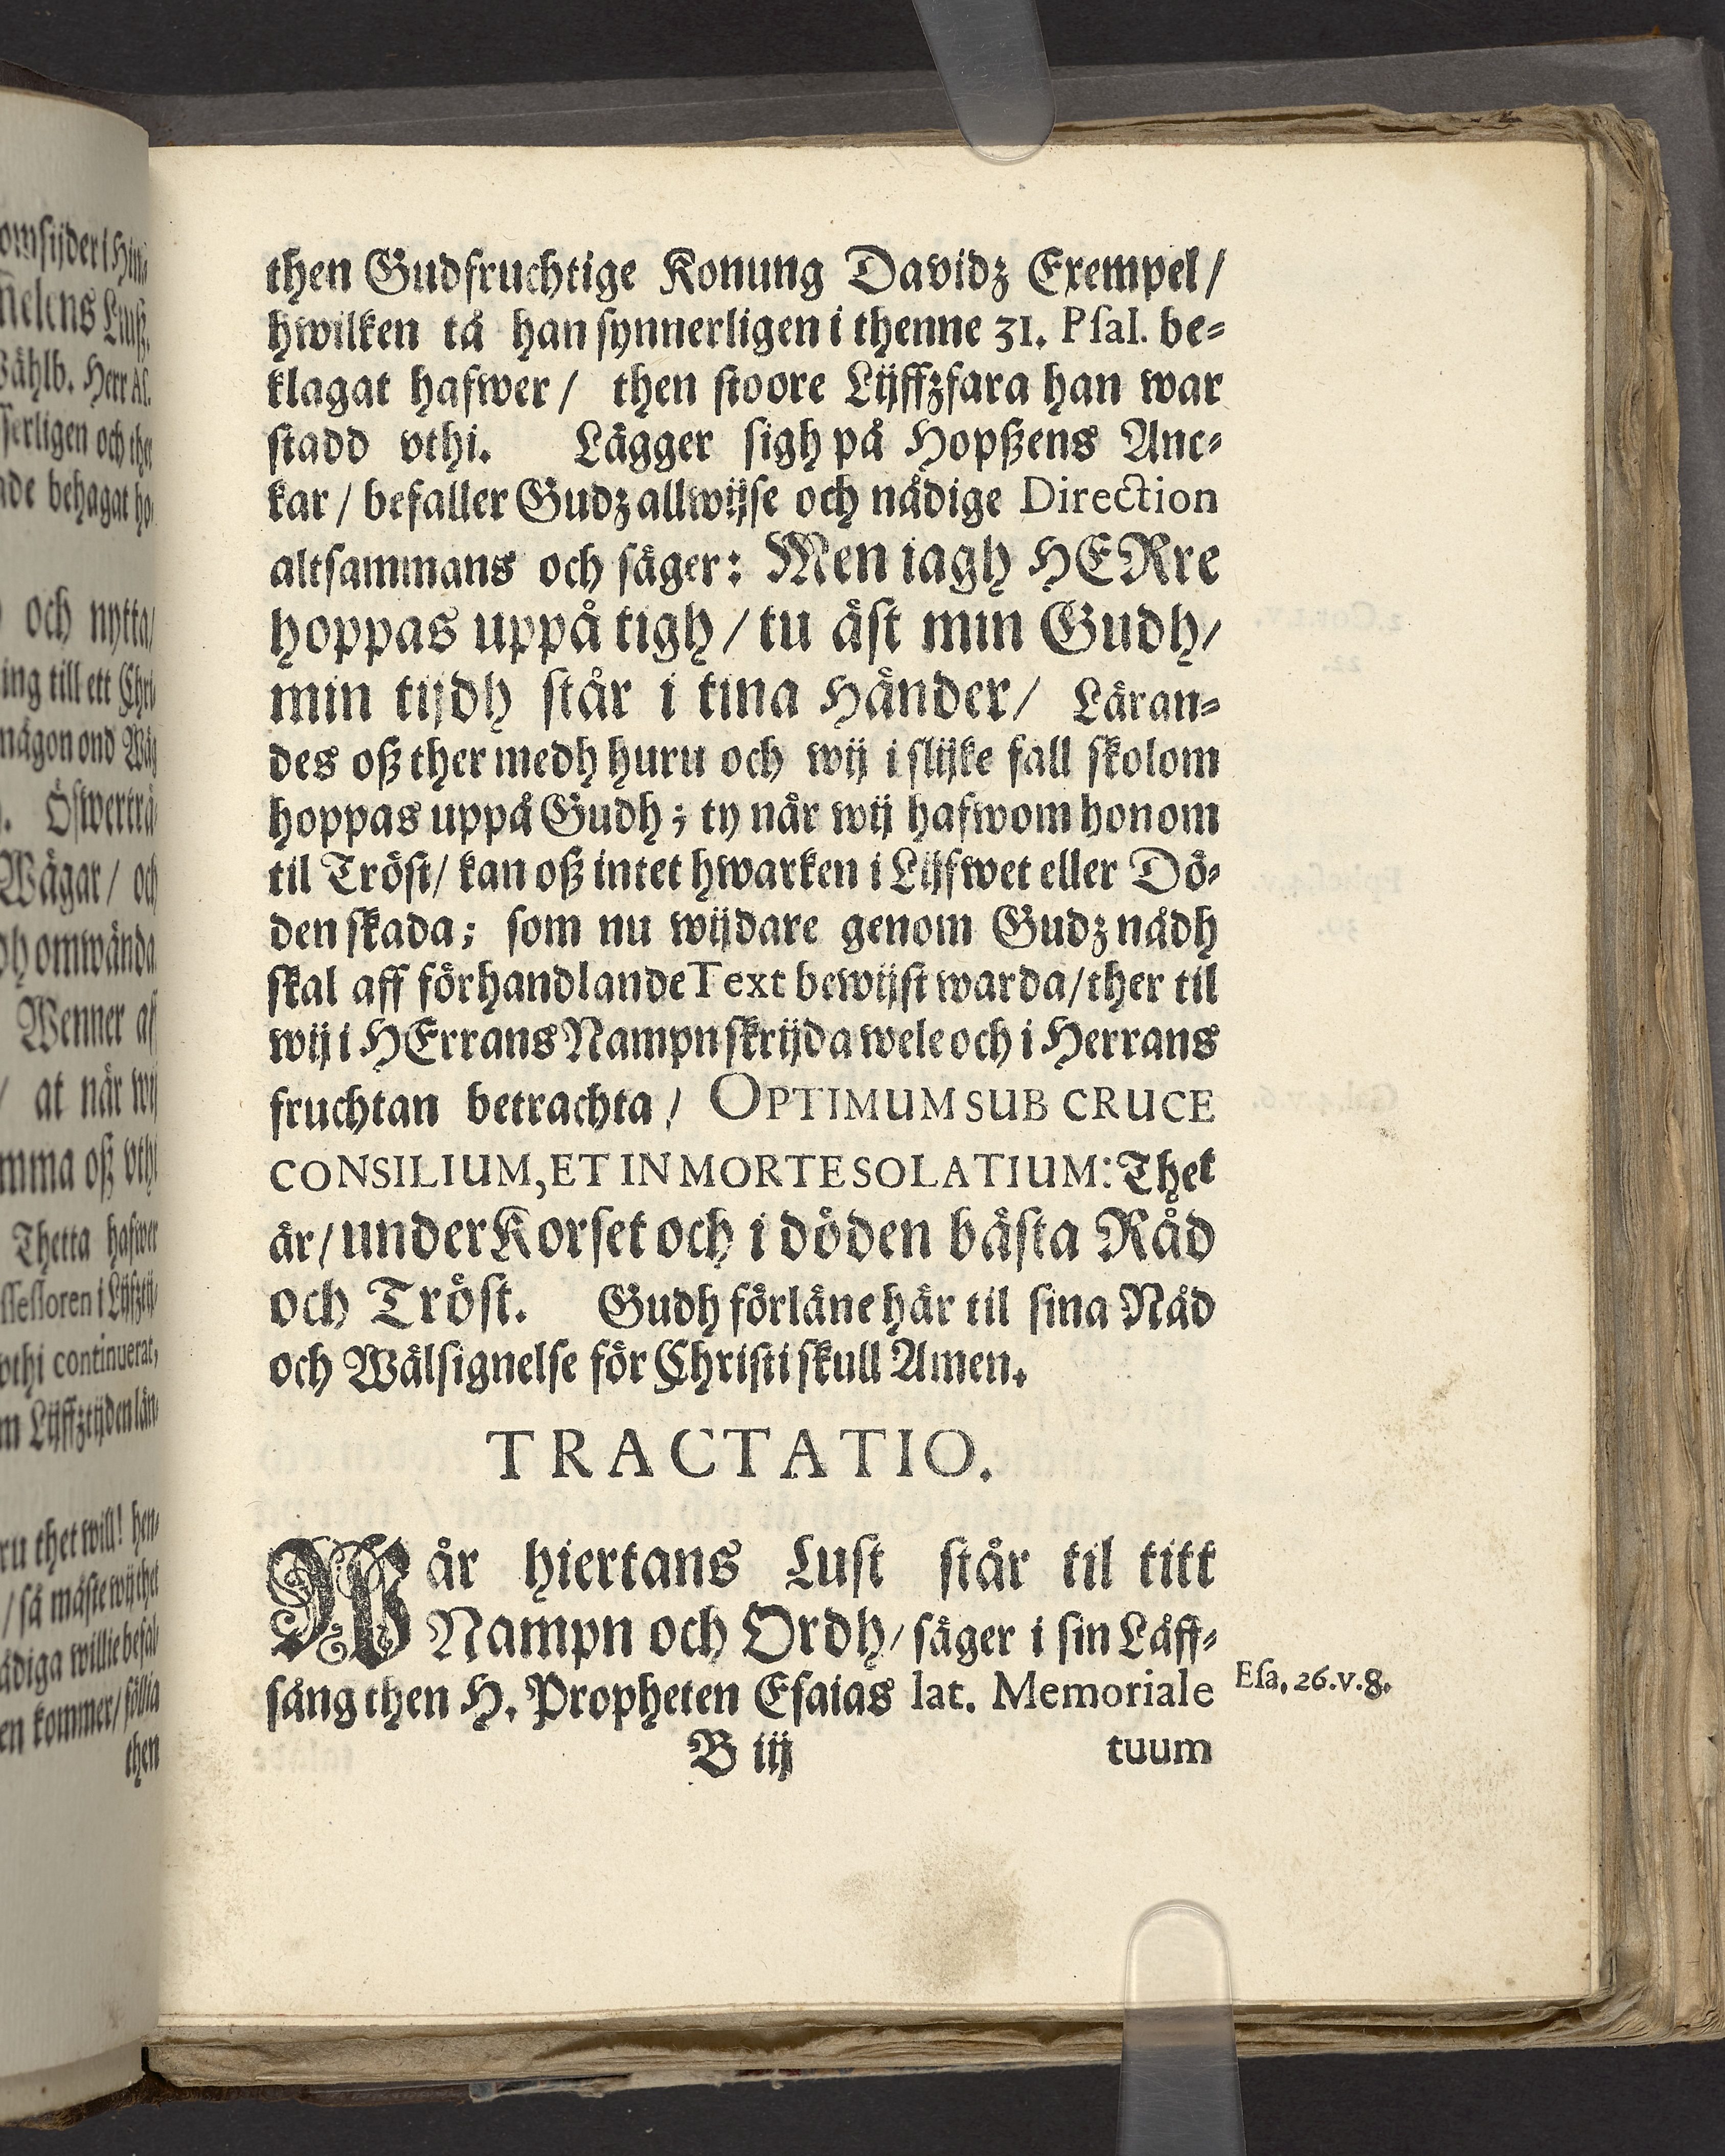 then Gudfruchtige Konung Davidz Exempel/
hwilken tå han synnerligen i thenne 31. Psal. be-
klagat hafwer/ then stoore Lijffzfara han war
stadd vthi. Lägger sigh på Hopßens Anc-
kar/ befaller Gudz allwijse och nådige Direction
altsammans och säger: Men iagh HERre
hoppas uppå tigh/ tu äst min Gudh/
min tijdh står i tina Händer/ Läran-
des oß ther medh huru och wij i slijke fall skolom
hoppas uppå Gudh; ty når wij hafwom honom
til Tröst/ kan oß intet hwarken i Lijfwet eller Dö-
den skada; som nu wijdare genom Gudz nådh
skal aff förhandlande Text bewijst warda/ ther til
wij i HErrans Nampn skrijda wele och i Herrans
fruchtan betrachta/ OPTIMUM SUB CRUCE
CONSILIUM, ET IN MORTE SOLATIUM: Thet
är/ under Korset och i döden bästa Råd
och Tröst. Gudh förläne här til sina Nåd
och Wälsignelse för Christi skull Amen.
TRACTATIO.
Wår hiertans Lust står til titt
Nampn och Ordh/ säger i sin Låff-
sång then H. Propheten Esaias lat. Memoriale
Esa. 26. v. 8.
B iij tuum